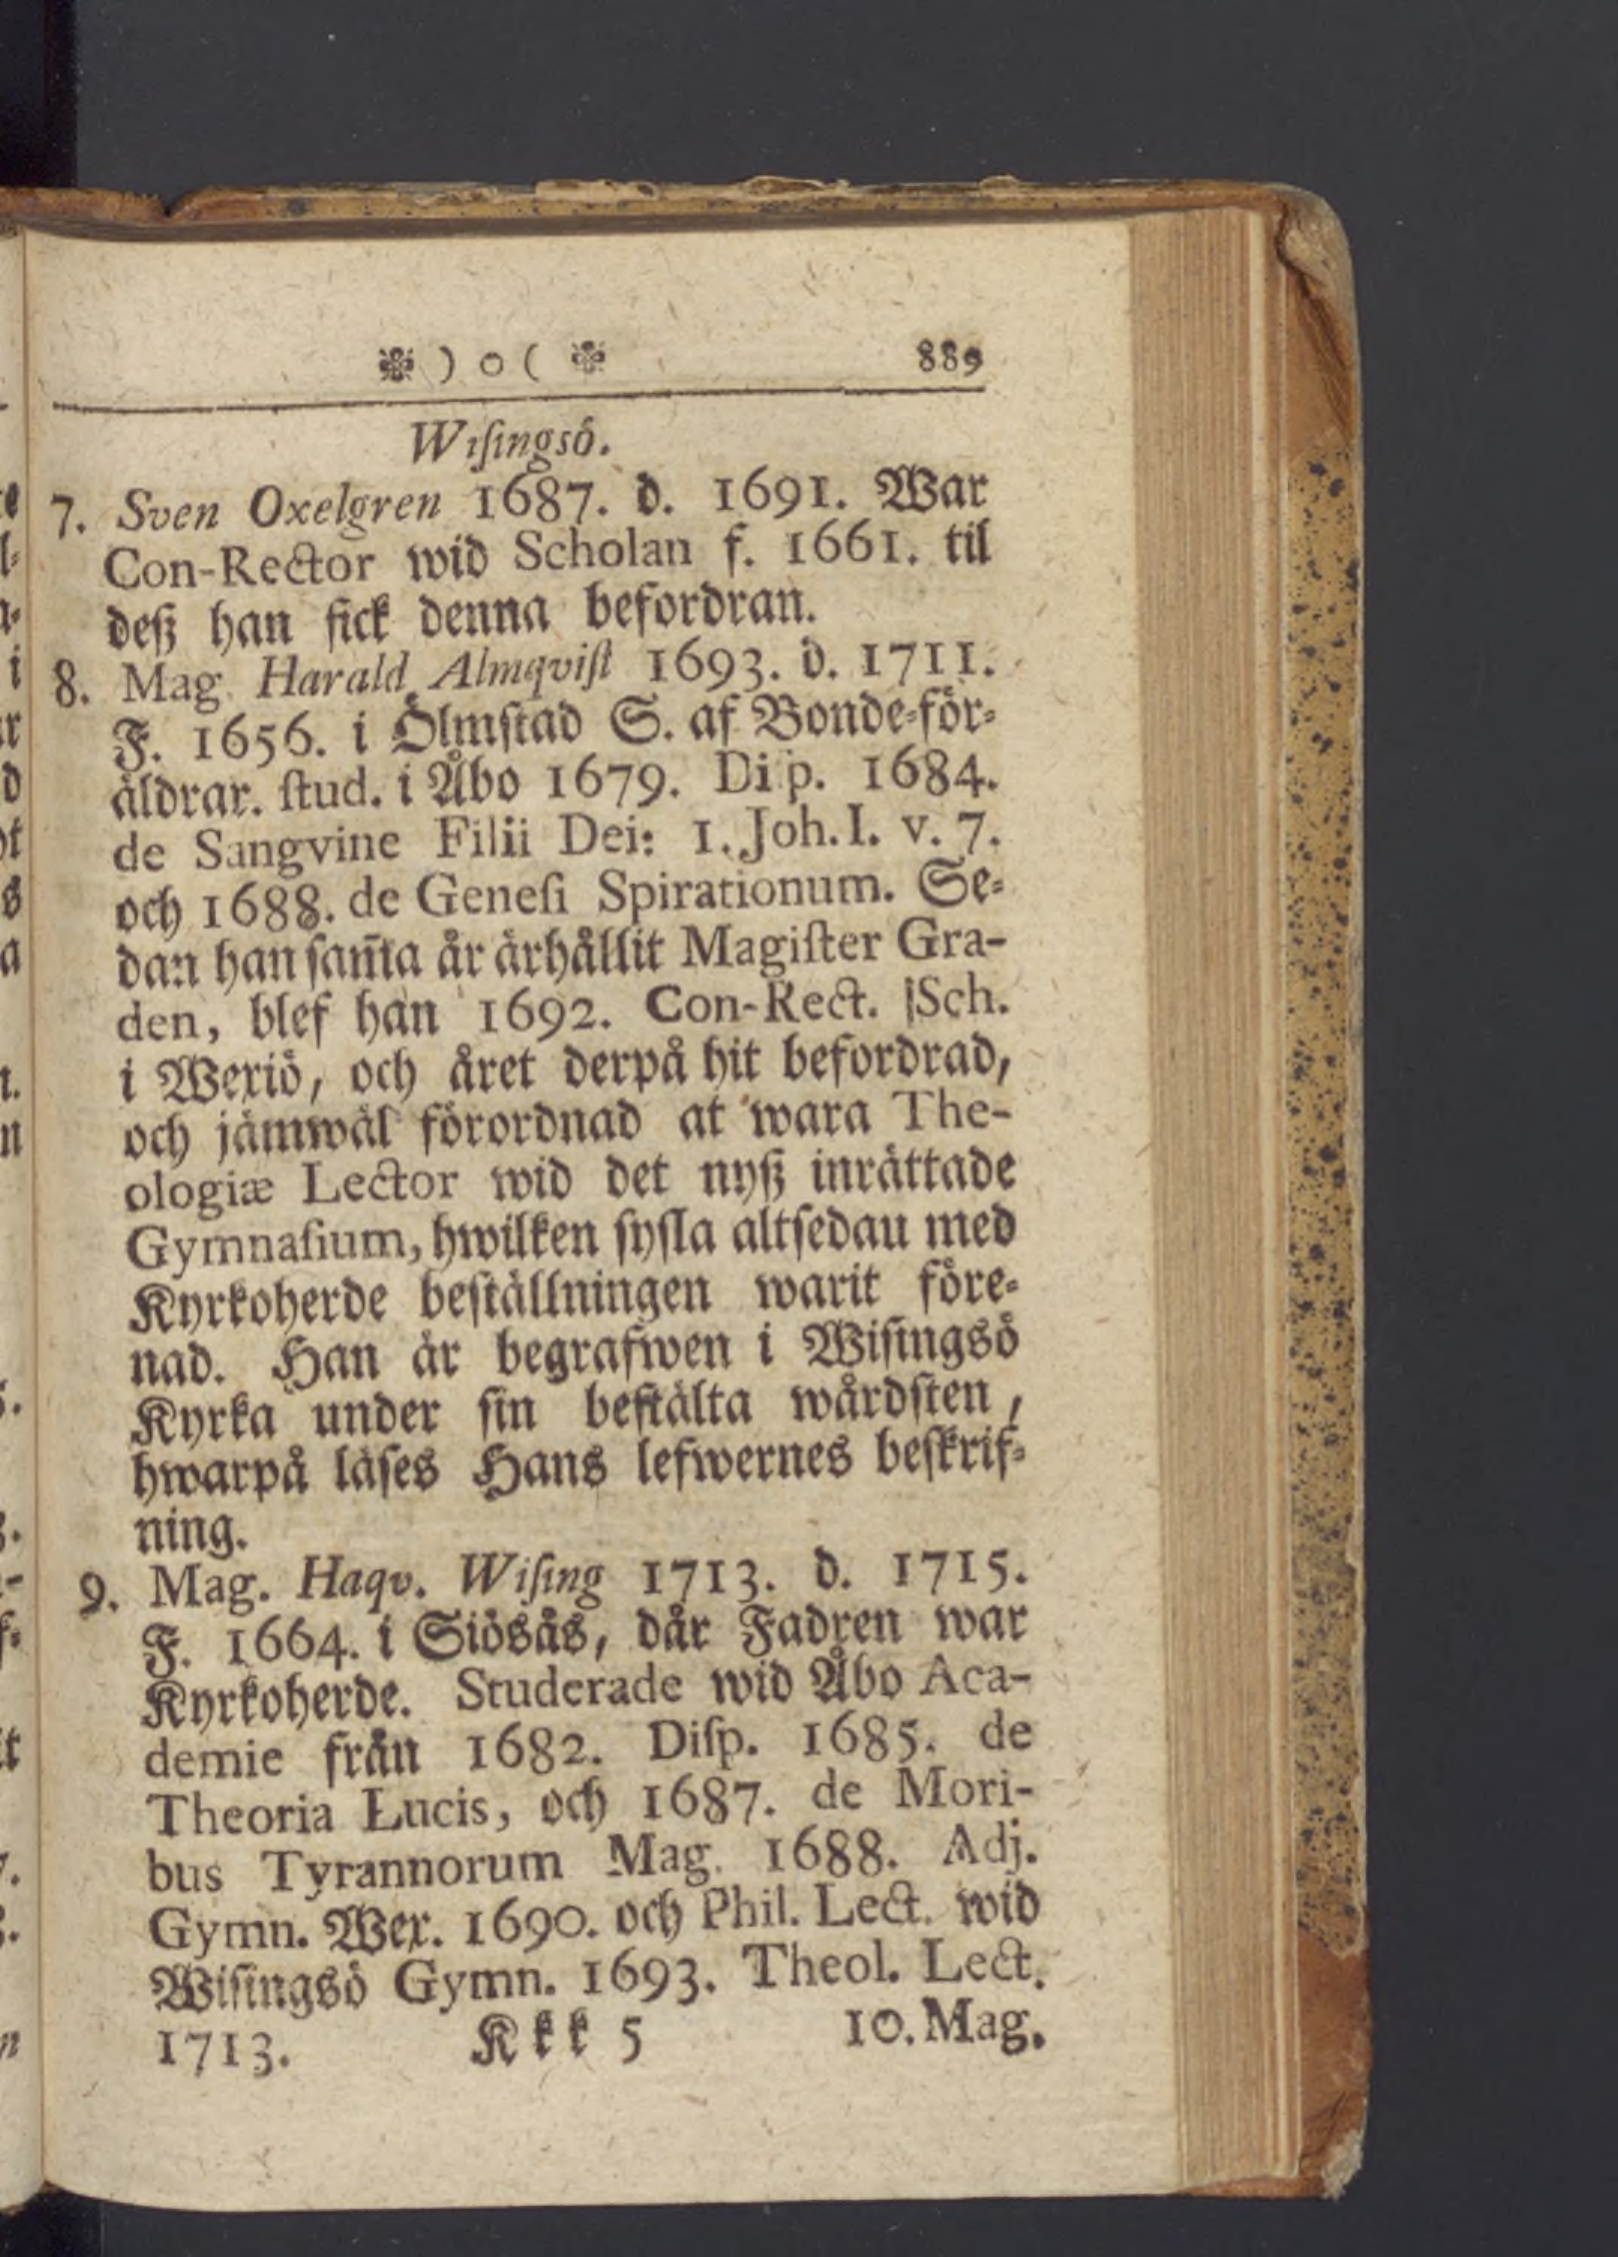 ❉ ) o ( ❉ 889
Wiſingsö.
7. Sven Oxelgren 1687. d. 1691. War
Con-Rector wid Scholan f. 1661. til
deß han fick denna befordran.
8. Mag. Harald Almqviſt 1693. d. 1711.
F. 1656. i Ölmſtad S. af Bonde-för-
äldrar. ſtud. i Åbo 1679. Diſp. 1684.
de Sangvine Filii Dei: 1. Joh. I. v. 7.
och 1688. de Geneſi Spirationum. Se-
dan han ſam̃a år ärhållit Magiſter Gra-
den, blef han 1692. Con-Rect. Sch.
i Wexiö, och året derpå hit befordrad,
och jämwäl förordnad at wara The-
ologiæ Lector wid det nyß inrättade
Gymnaſium, hwilken ſyſla altſedau med
Kyrkoherde beſtällningen warit före-
nad. Han är begrafwen i Wiſingsö
Kyrka under ſin beſtälta wårdſten,
hwarpå läſes Hans lefwernes beſkrif-
ning.
9. Mag. Haqv. Wiſing 1713. d. 1715.
F. 1664. i Siösås, där Fadren war
Kyrkoherde. Studerade wid Åbo Aca-
demie från 1682. Diſp. 1685. de
Theoria Lucis, och 1687. de Mori-
bus Tyrannorum Mag. 1688. Adj.
Gymn. Wex. 1690. och Phil. Lect. wid
Wiſingsö Gymn. 1693. Theol. Lect.
1713. Kkk 5 10. Mag.